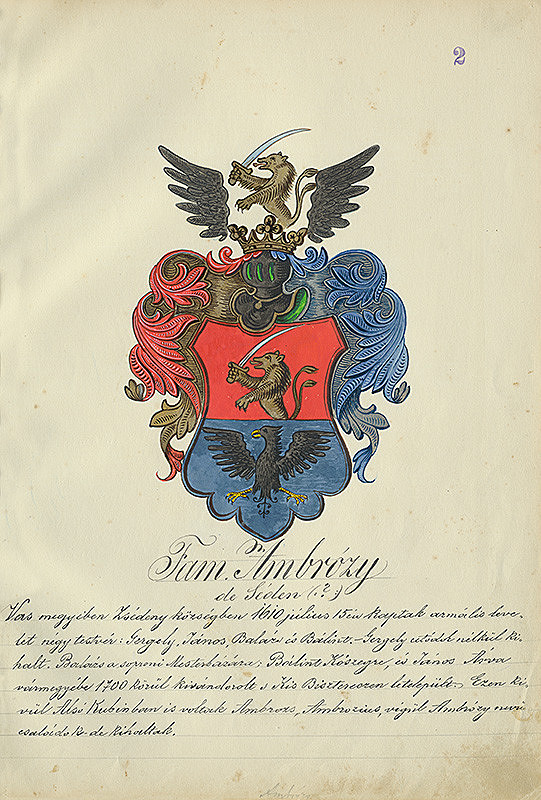 2
Fam. Ambrózy
de Seden (.?.)
Vas megyében Zsédeny községben 1610 július 15én kaptak armális leve-
let négy testvér: Gergely, János Balázs és Bálint. - Gergely utódok nélkül ki-
halt. Balázs a soproni Mesterházára; Bálint Kőszegre, és János Árva
vármegyébe 1700 körül kivándorolt s Kis Biszterecen letelepült. Ezen ki-
vül Alsó Kubinban is voltak Ambrozs, Ambrozius, végül Ambrózy nevű
családok de kihaltak.